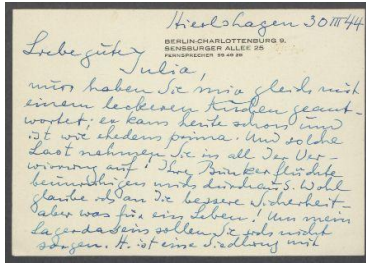 Hierlshagen 30 III 44
BERLIN-CHARLOTTENBURG 9,
SENSBURGER ALLEE 25
FERNSPRECHER 99 49 28
Liebe gute Julia,
nun haben Sie mir gleich mit
einem leckeren Kuchen geant-
wortet: er kam heute schon und
ist wie ehedem prima. Und solche
Last nehmen Sie in all der Ver-
wirrung auf! Ihre Bunkerflüchte
beunruhigen mich durchaus. Wohl
glaube ich an die bessere Sicherheit -
aber was für ein Leben! Um mein
Lagerdasein sollen Sie sich nicht
sorgen. H. ist eine Siedlung mit